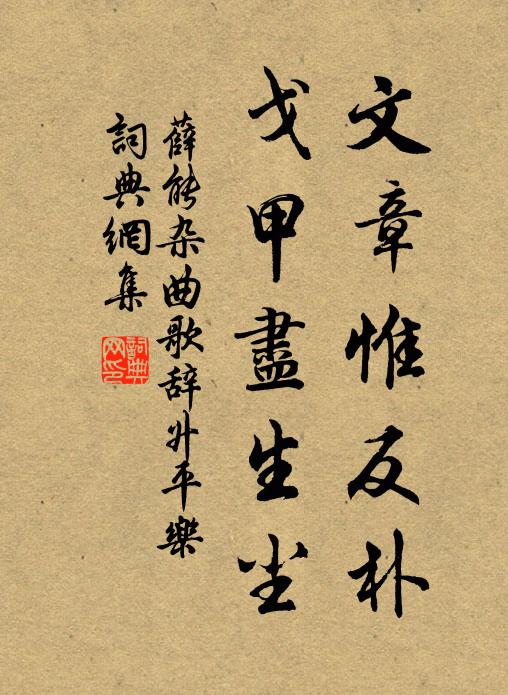 文章惟反朴
戈甲盡生尘
薛能杂曲歌辞升平樂
詞典網集
詞典网印